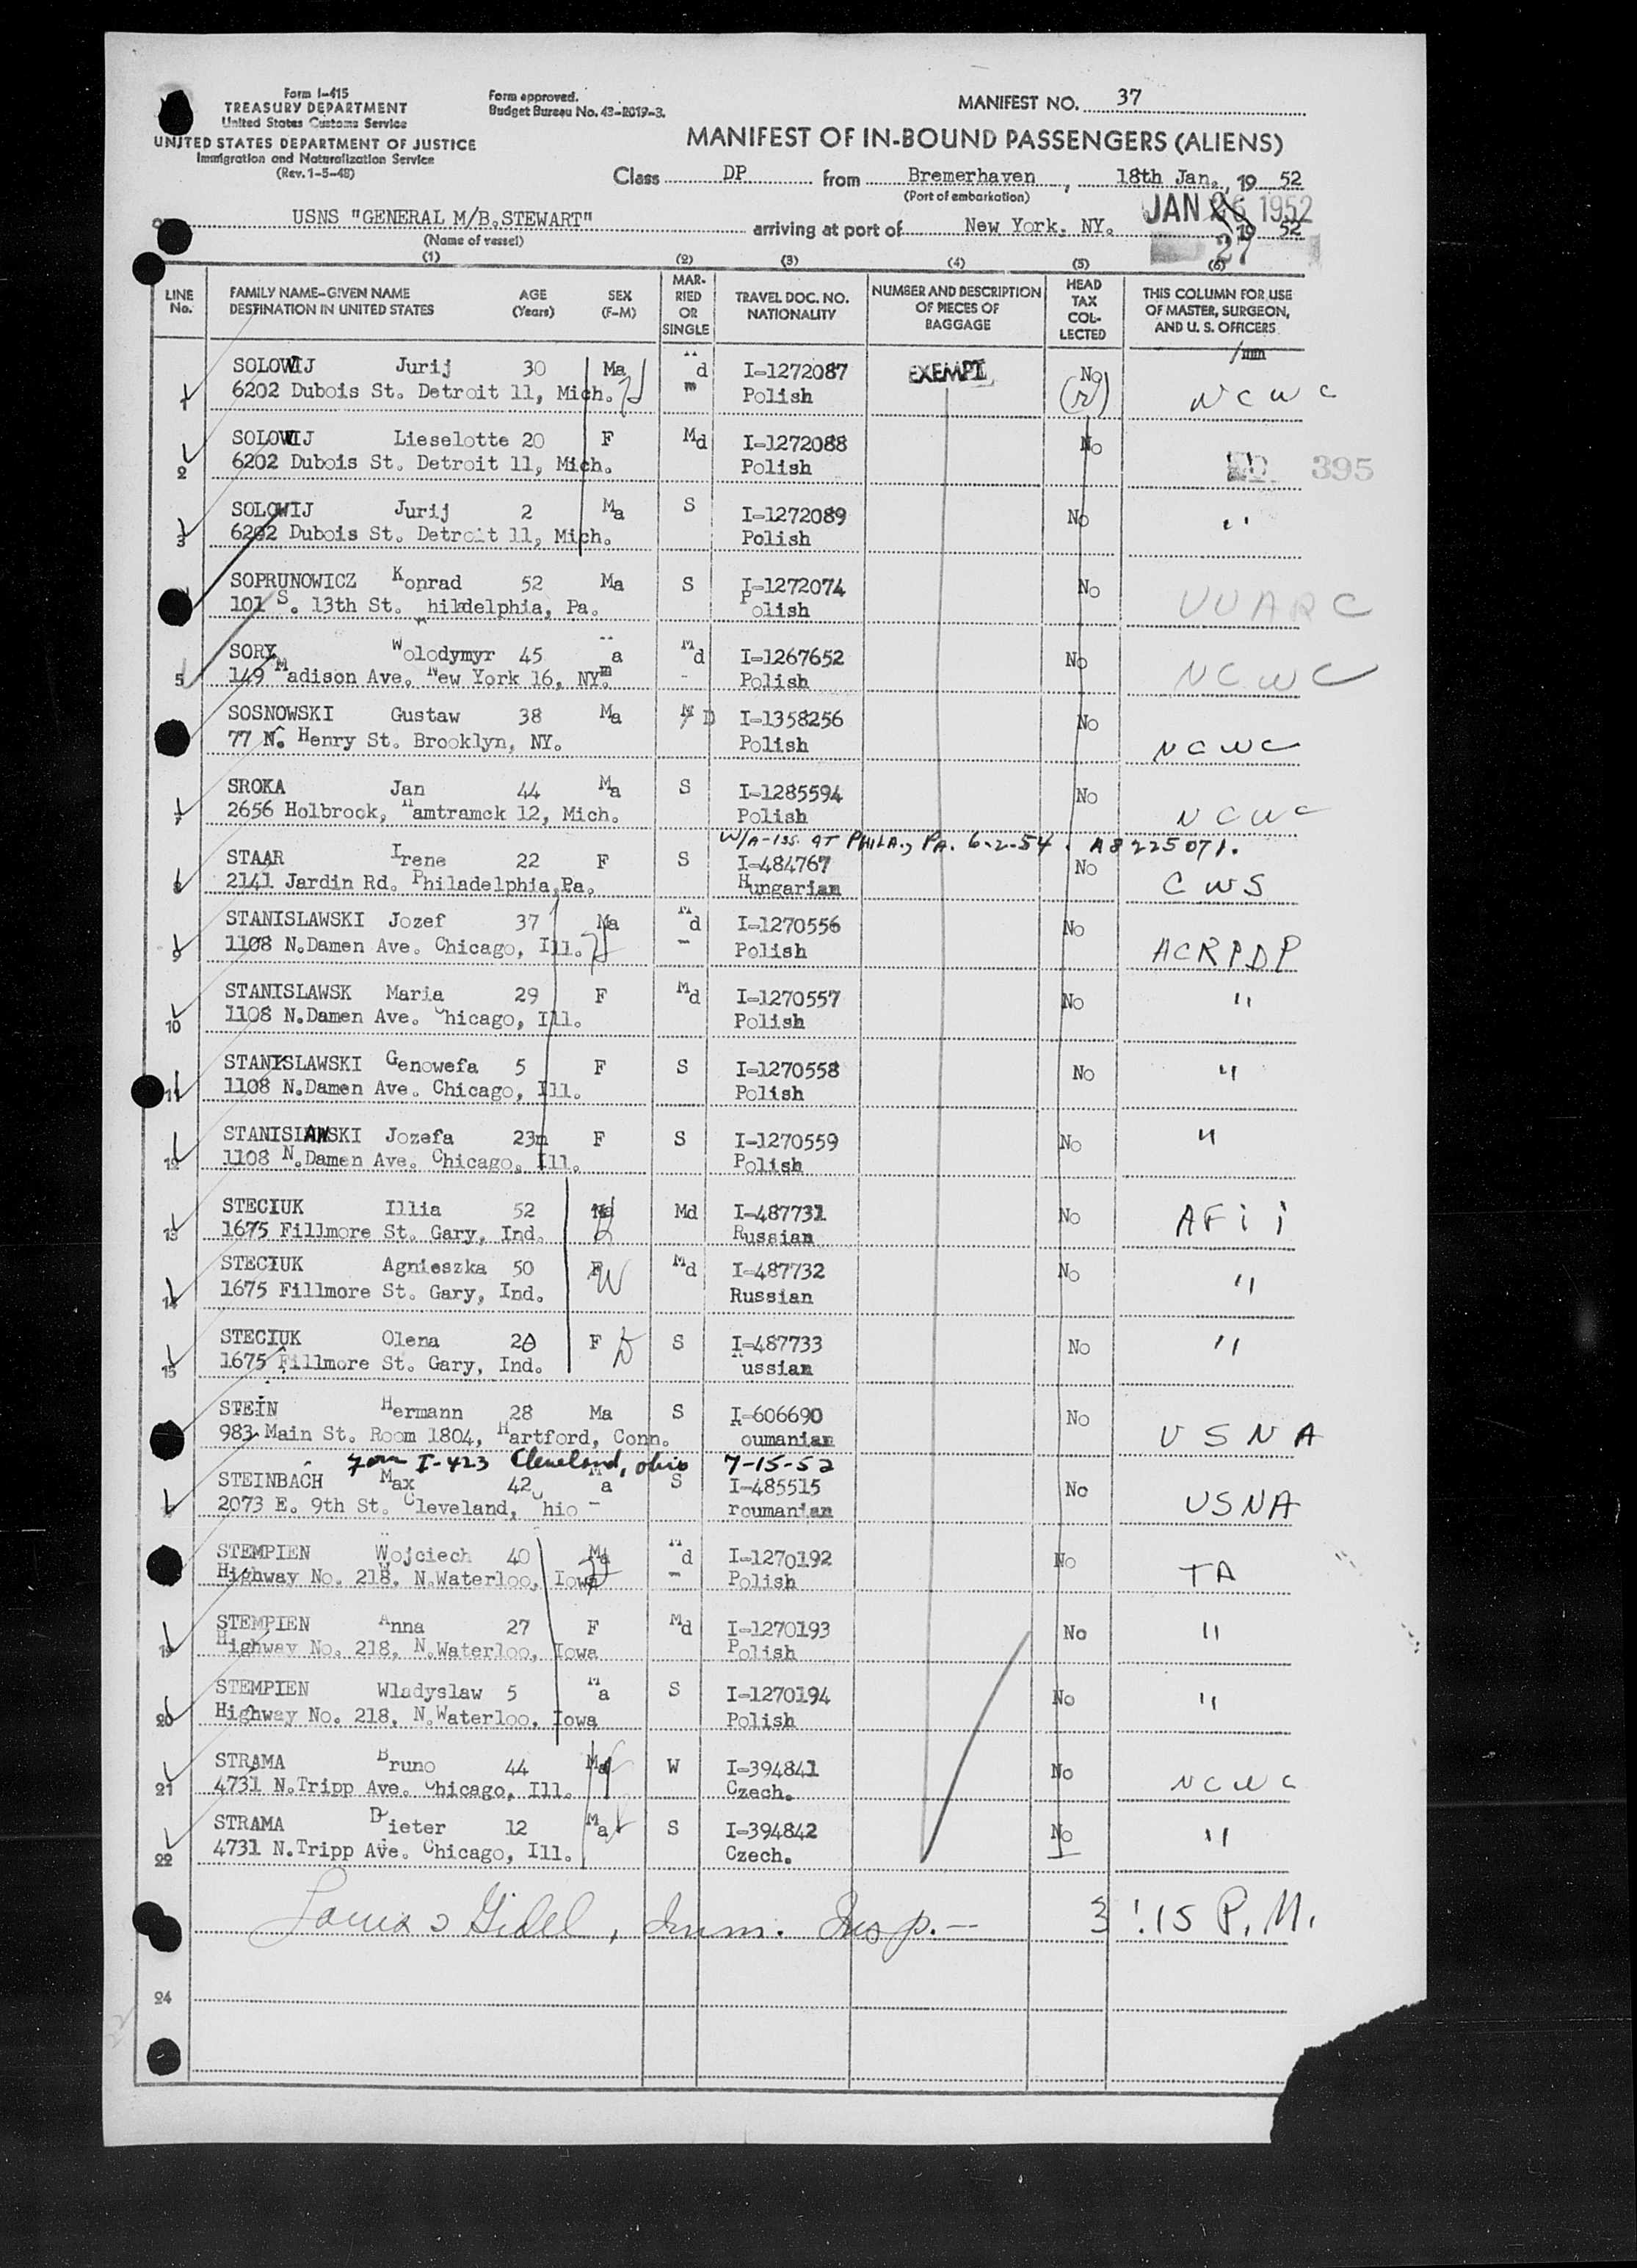 Form I-415
TREASURY DEPARTMENT
United States Customs Service
UNITED STATES DEPARTMENT OF JUSTICE
Immigration and Naturalization Service
(Rev. 1-5-48)
Form approved.
Budget Bureau No. 43-R019-3.
MANIFEST NO. 37
MANIFEST OF IN-BOUND PASSENGERS (ALIENS)
Class DP from Bremerhaven, 18th Jan., 19 52
(Port of embarkation)
USNS "GENERAL M/B.STEWART" arriving at port of New York. NY. JAN 26 1952 27 19 52
(Name of vessel)
(1) (2) (3) (4) (5) (6)
LINE No. FAMILY NAME-GIVEN NAME DESTINATION IN UNITED STATES AGE (Years) SEX (F-M) MARRIED OR SINGLE TRAVEL DOC. NO. NATIONALITY NUMBER AND DESCRIPTION OF PIECES OF BAGGAGE HEAD TAX COLLECTED THIS COLUMN FOR USE OF MASTER, SURGEON, AND U. S. OFFICERS
1 SOLOWIJ Jurij 30 Ma d I-1272087 EXEMPT No NCWC
6202 Dubois St. Detroit 11, Mich. m Polish (r)
2 SOLOWIJ Lieselotte 20 F Md I-1272088 No
6202 Dubois St. Detroit 11, Mich. Polish 395
3 SOLOWIJ Jurij 2 Ma S I-1272089 No "
6202 Dubois St. Detroit 11, Mich. Polish
SOPRUNOWICZ Konrad 52 Ma S I-1272074 No UUARC
101 S. 13th St. hiladelphia, Pa. Polish
5 SORY Wolodymyr 45 a Md I-1267652 No NCWC
149 Madison Ave. New York 16, NY. Polish
SOSNOWSKI Gustaw 38 Ma M D I-1358256 No NCWC
77 N. Henry St. Brooklyn, NY. Polish
7 SROKA Jan 44 Ma S I-1285594 No NCWC
2656 Holbrook, Hamtramck 12, Mich. Polish
W/A-iss. AT PHILA., PA. 6-2-54. A8225071.
8 STAAR Irene 22 F S I-484767 No CWS
2141 Jardin Rd. Philadelphia,Pa. Hungarian
9 STANISLAWSKI Jozef 37 Ma Md I-1270556 No ACRPDP
1108 N.Damen Ave. Chicago, Ill. Polish
10 STANISLAWSK Maria 29 F Md I-1270557 No "
1108 N.Damen Ave. Chicago, Ill. Polish
11 STANISLAWSKI Genowefa 5 F S I-1270558 No "
1108 N.Damen Ave. Chicago, Ill. Polish
12 STANISLAWSKI Jozefa 23m F S I-1270559 No "
1108 N.Damen Ave. Chicago. Ill. Polish
13 STECIUK Illia 52 Ma Md I-487731 No AFii
1675 Fillmore St. Gary, Ind. Russian
14 STECIUK Agnieszka 50 F W Md I-487732 No "
1675 Fillmore St. Gary, Ind. Russian
15 STECIUK Olena 20 F D S I-487733 No "
1675 Fillmore St. Gary, Ind. Russian
STEIN Hermann 28 Ma S I-606690 No USNA
983 Main St. Room 1804, Hartford, Conn. Roumanian
Form I-423 Cleveland, Ohio 7-15-52
STEINBACH Max 42 Ma S I-485515 No USNA
2073 E. 9th St. Cleveland, Ohio roumanian
STEMPIEN Wojciech 40 Ma Md I-1270192 No TA
Highway No. 218, N.Waterloo, Iowa Polish
19 STEMPIEN Anna 27 F Md I-1270193 No "
Highway No. 218, N.Waterloo, Iowa Polish
20 STEMPIEN Wladyslaw 5 Ma S I-1270194 No "
Highway No. 218, N.Waterloo, Iowa Polish
21 STRAMA Bruno 44 Ma W I-394841 No NCWC
4731 N.Tripp Ave. Chicago, Ill. Czech.
22 STRAMA Dieter 12 Ma S I-394842 No "
4731 N.Tripp Ave. Chicago, Ill. Czech.
Gidel, Imm. Insp. — 3:15 P.M.
24